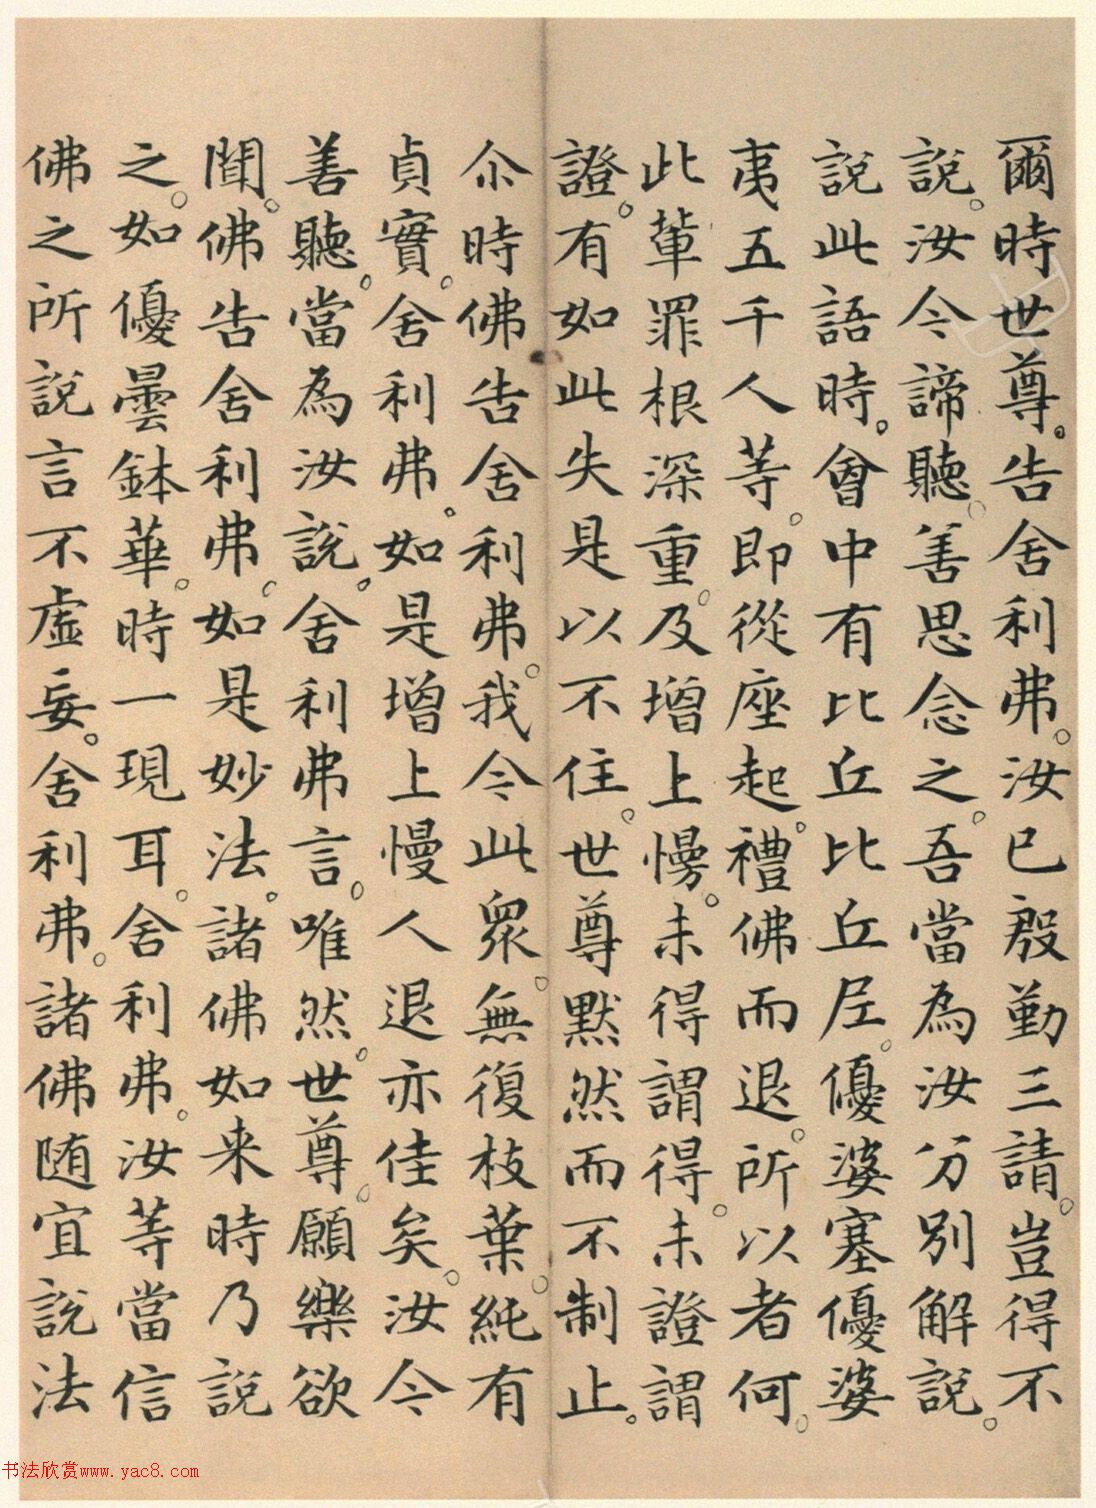 爾時世尊。告舍利弗。汝已殷勤三請。豈得不
說。汝今諦聽。善思念之。吾當為汝分別解說。
說此語時。會中有比丘比丘尼。優婆塞優婆
夷五千人等。即從座起。禮佛而退。所以者何。
此輩罪根深重。及增上慢。未得謂得。未證謂
證。有如此失是以不住。世尊默然而不制止。
尒時佛告舍利弗。我今此眾。無復枝葉。純有
貞實。舍利弗。如是增上慢人退亦佳矣。汝今
善聽。當為汝說。舍利弗言。唯然。世尊。願樂欲
聞。佛告舍利弗。如是妙法。諸佛如来時乃說
之。如優曇鉢華。時一現耳。舍利弗。汝等當信
佛之所說言不虛妄。舍利弗。諸佛随宜說法
书法欣赏www.yac8.com